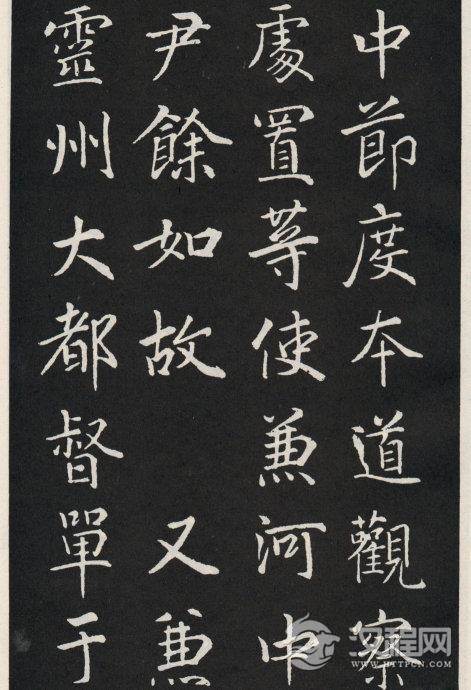 中節度本道觀察
處置等使兼河中
尹餘如故 又兼
靈州大都督單于
汉程网
WWW.HTTPCN.COM